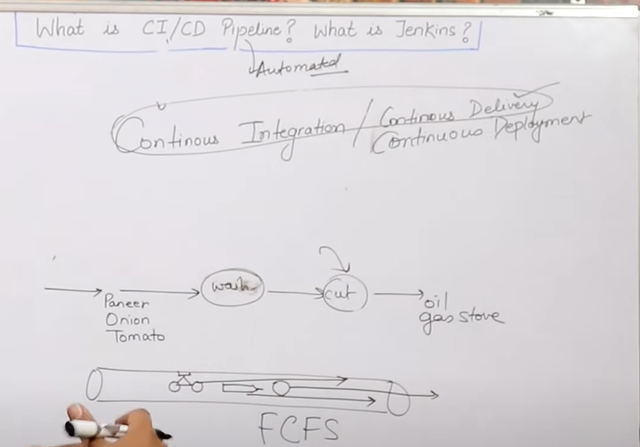 What is CI/CD Pipeline? What is Jenkins?
Automated
Continous Integration / Continous Delivery
Continuous Deployment
wash
cut
Paneer
Onion
Tomato
oil
gas stove
FCFS